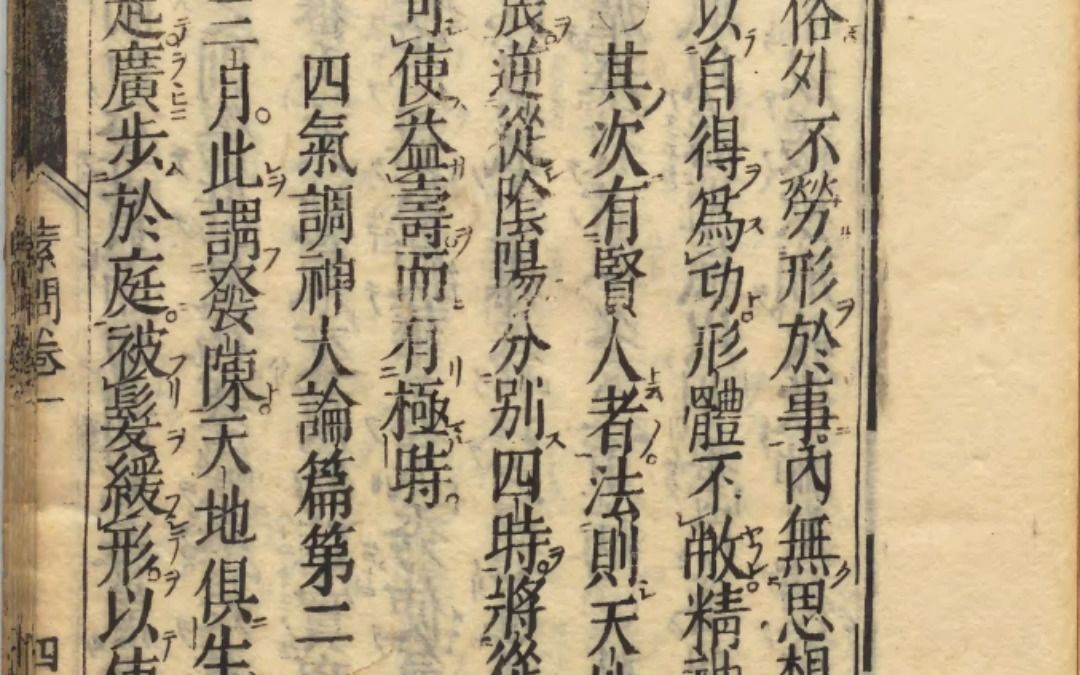 俗外不勞形於事內無思想
以自得爲功形體不敝精神
其次有賢人者法則天地
辰逆從陰陽分別四時將從
可使益壽而有極時
四氣調神大論篇第二
三月此謂發陳天地俱生
起廣步於庭被髮緩形以使
素問卷一
四